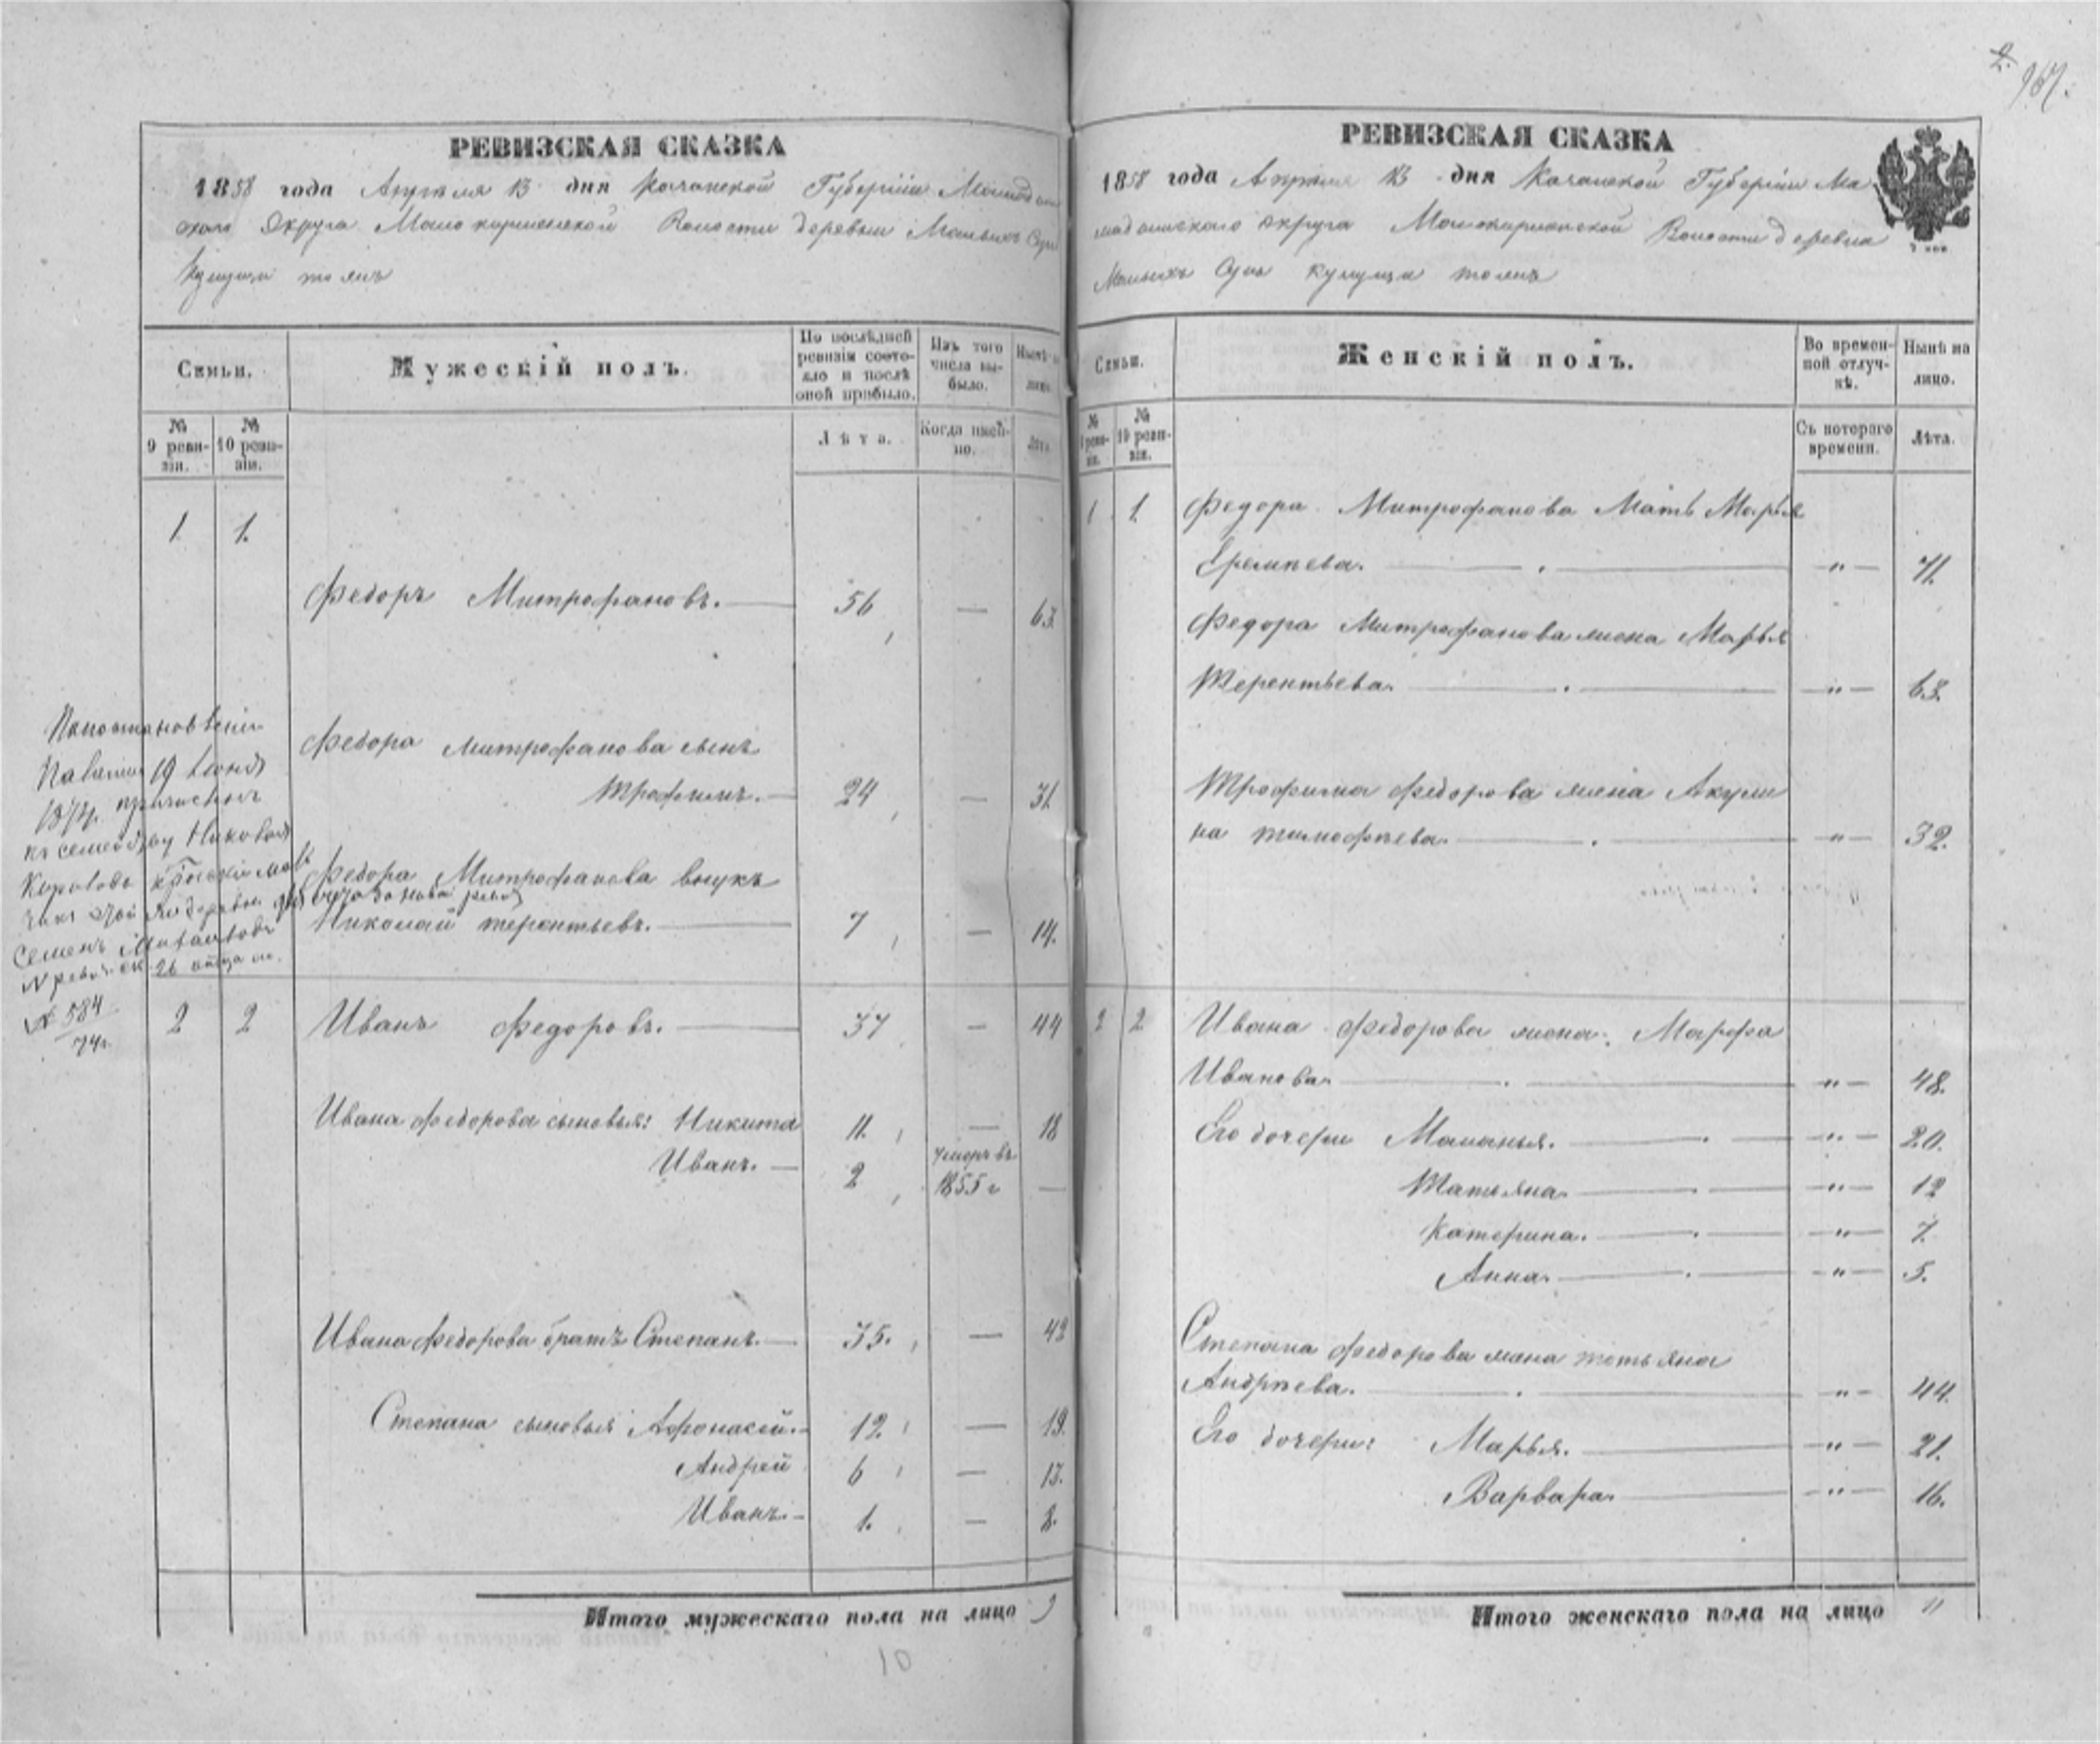 2.
967.
РЕВИЗСКАЯ СКАЗКА
1858 года Апреля 13 дня Казанской Губернии Мамадыш
скаго Округа Мало кирменской Волости деревни Малыхъ Сунь
тожъ
Семьи.
Мужескій полъ.
По послѣдней ревизіи состояло и послѣ оной прибыло.
Изъ того числа выбыло.
Нынѣ на лицо.
№ 9 ревизіи.
№ 10 ревизіи.
Лѣта.
Когда именно.
Лѣта.
1 1.
Федоръ Митрофановъ. 56 — 63.
Федора Митрофанова сынъ
Трофимъ. — 24 — 31.
Федора Митрофанова внукъ
Николай Терентьевъ. 7 — 14.
По постановленію
19 Іюня
къ семейству
Семенъ
№ 584
74г.
2 2 Иванъ Федоровъ. 37 — 44
Ивана Федорова сыновья: Никита 11. — 18
Иванъ. — 2 умеръ въ 1855 г —
Ивана Федорова братъ Степанъ. — 35. — 42
Степана сыновья Афонасій. — 12. — 19.
Андрей 6 — 13.
Иванъ. — 1. — 8.
Итого мужескаго пола на лицо 9
10
РЕВИЗСКАЯ СКАЗКА
1858 года Апреля 13 дня Казанской Губерніи Ма
мадышскаго округа Малокирменской Волости деревни
Малыхъ Сунь тожъ
Семьи.
Женскій полъ.
Во временной отлучкѣ.
Нынѣ на лицо.
№ 9 ревизіи.
№ 10 ревизіи.
Съ котораго времени.
Лѣта.
1 1. Федора Митрофанова Мать Марья
Еремѣева. " — 71.
Федора Митрофанова жена Марья
Терентьева. " — 63.
Трофима Федорова жена Акули
на Тимофѣева. " — 32.
2 2. Ивана Федорова жена Марфа
Иванова. " — 48.
Его дочери Маланья. " — 20.
Татьяна. " — 12
Катерина. " — 7.
Анна. " — 5.
Степана Федорова жена Татьяна
Андрѣева. " — 44.
Его дочери: Марья. " — 21.
Варвара. " — 16.
Итого женскаго пола на лицо 11